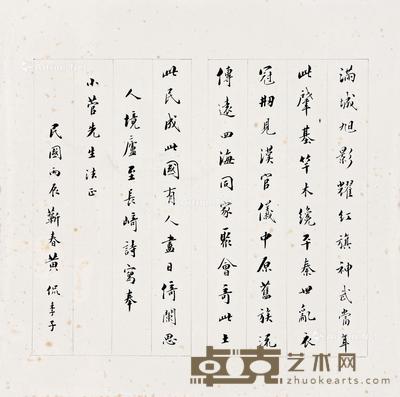 滿城旭影耀紅旗神武當年
此肇基竿木纔平秦世亂衣
冠刱見漢官儀中原舊族流
傳遠四海同家聚會奇此土
此民成此國有人盡日倚闌思
人境廬至長崎詩寫奉
小菅先生法正
民國丙辰蘄春黃侃季子
卓克艺术网
www.zhuokearts.com